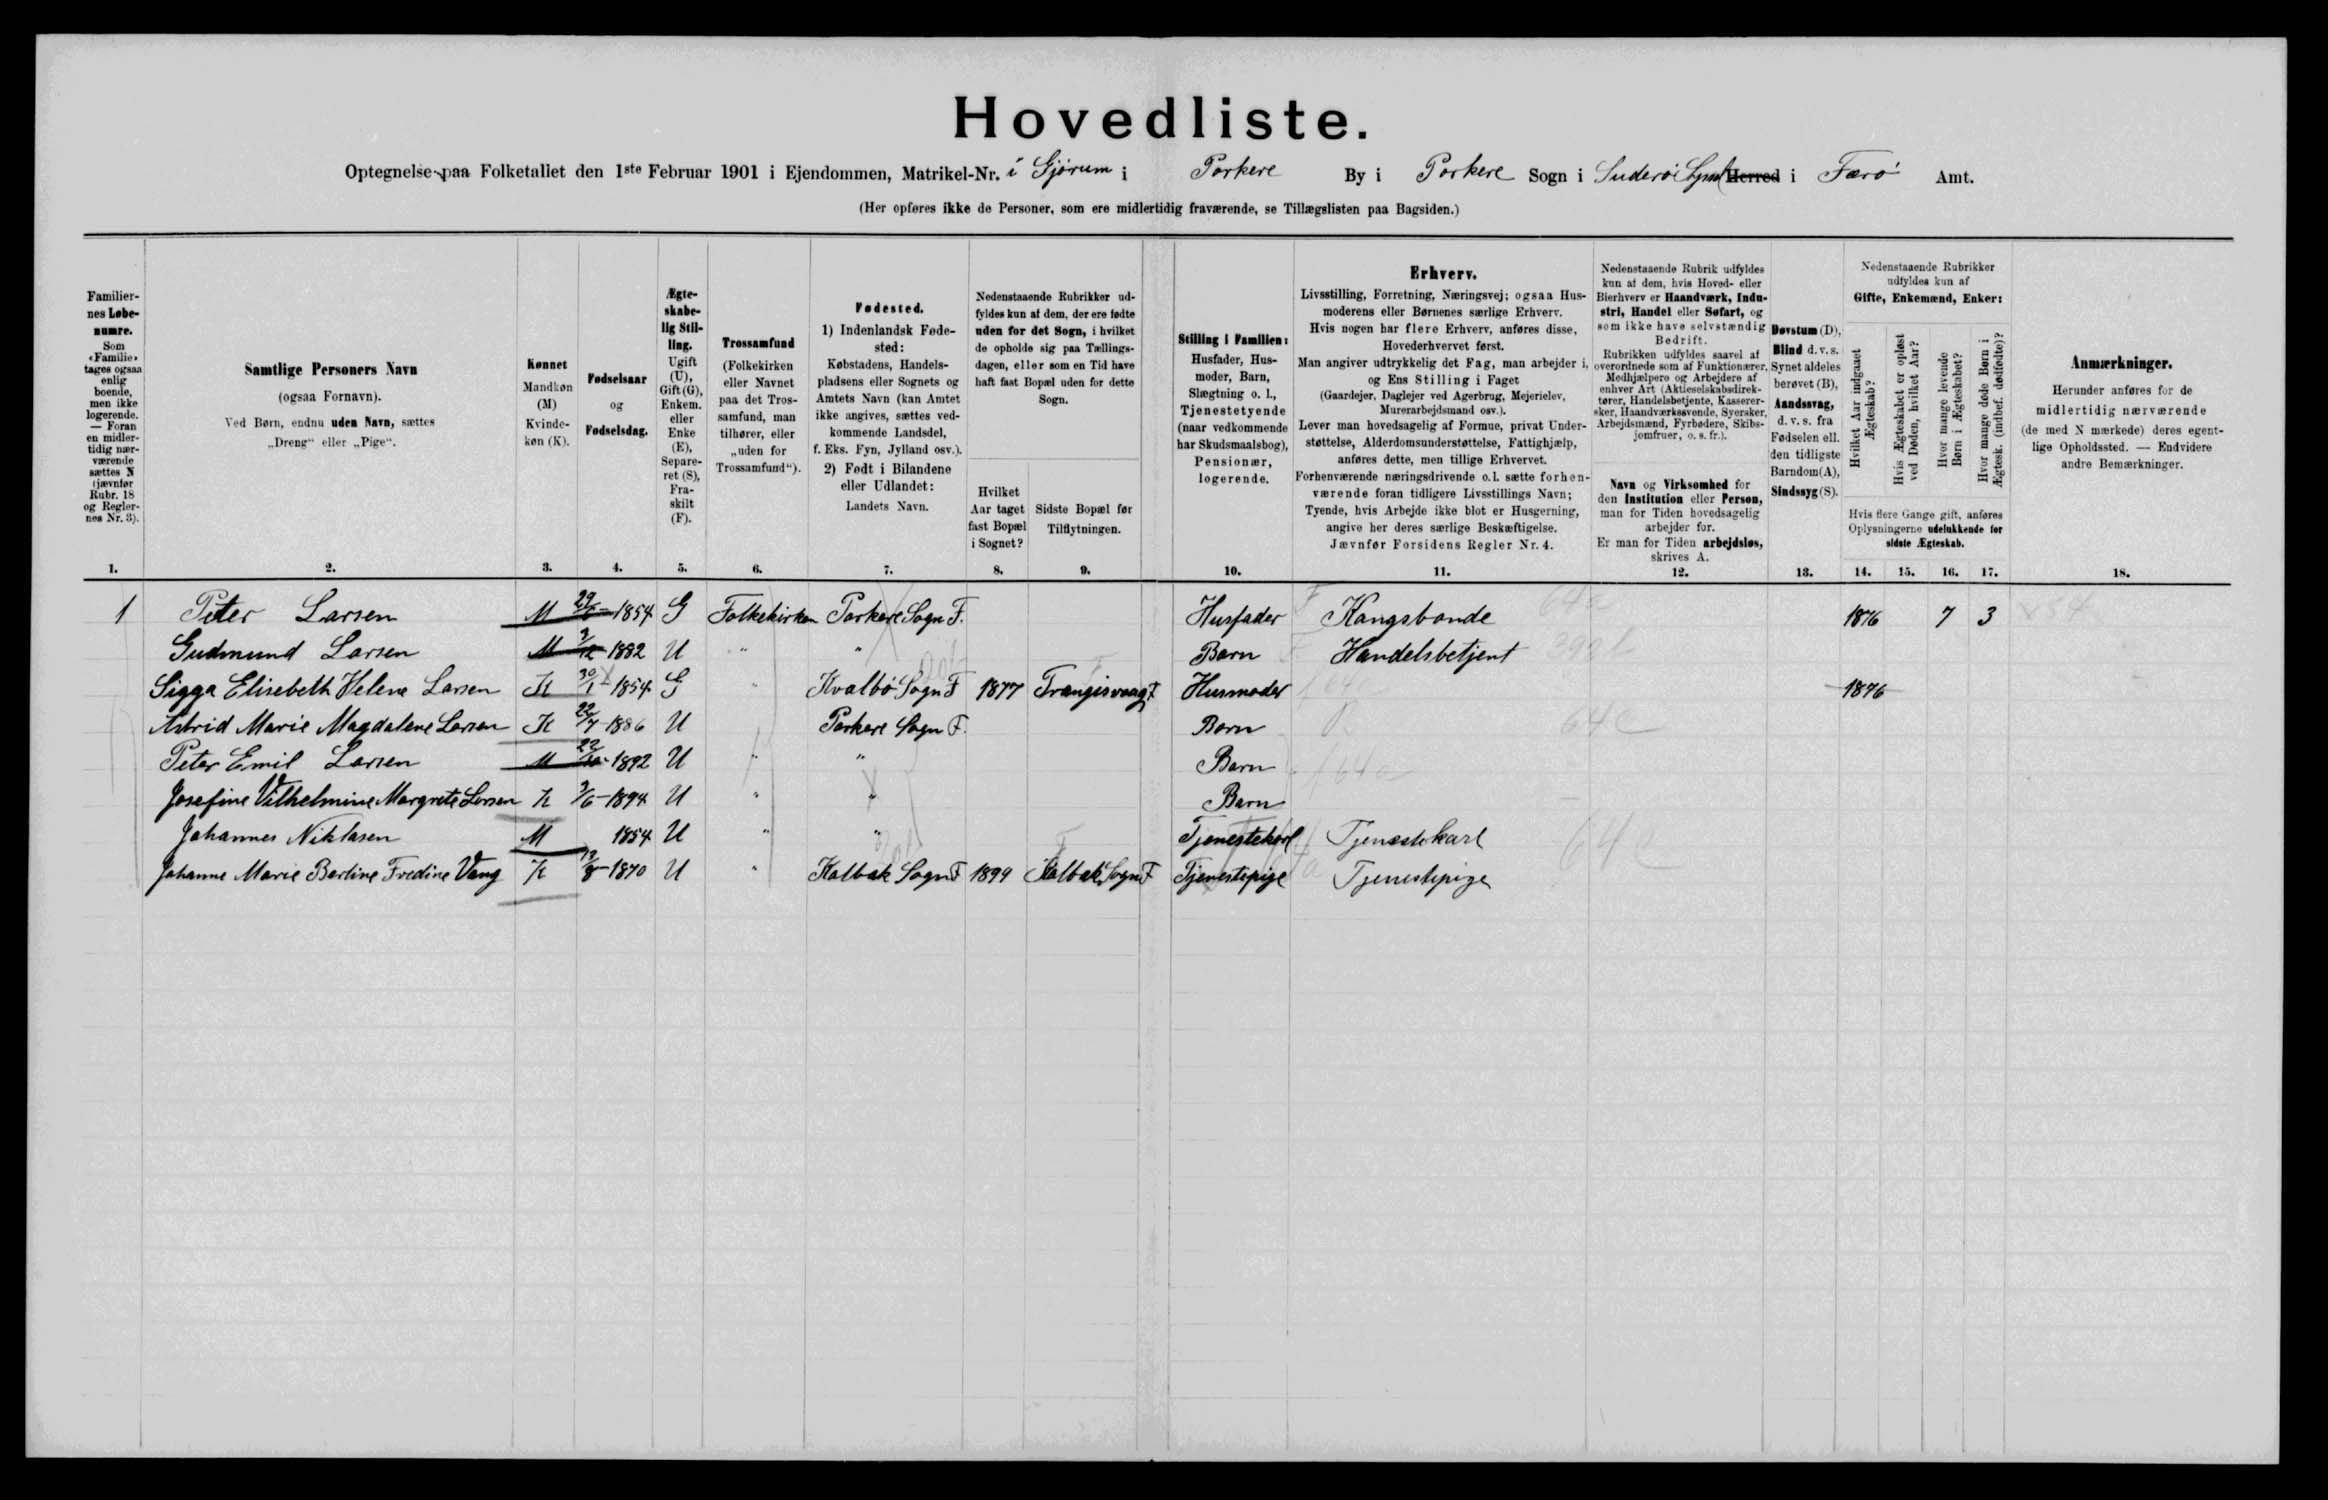 Hovedliste.
Optegnelse paa Folketallet den 1ste Februar 1901 i Ejendommen, Matrikel-Nr. i Gjörum i Porkere By i Porkere Sogn i Suderö Syssel Herred i Færö Amt.
(Her opføres ikke de Personer, som ere midlertidig fraværende, se Tillægslisten paa Bagsiden.)
Familiernes Løbenumre. Som «Familie» tages ogsaa enlig boende, men ikke logerende. — Foran en midlertidig nærværende sættes N (jævnfør Rubr. 18 og Reglernes Nr. 3).
Samtlige Personers Navn (ogsaa Fornavn). Ved Børn, endnu uden Navn, sættes „Dreng“ eller „Pige“.
Kønnet Mandkøn (M) Kvindekøn (K).
Fødselsaar og Fødselsdag.
Ægteskabelig Stilling. Ugift (U), Gift (G), Enkem. eller Enke (E), Separeret (S), Fraskilt (F).
Trossamfund (Folkekirken eller Navnet paa det Trossamfund, man tilhører, eller „uden for Trossamfund“).
Fødested. 1) Indenlandsk Fødested: Købstadens, Handelspladsens eller Sognets og Amtets Navn (kan Amtet ikke angives, sættes vedkommende Landsdel, f. Eks. Fyn, Jylland osv.). 2) Født i Bilandene eller Udlandet: Landets Navn.
Nedenstaaende Rubrikker udfyldes kun af dem, der ere fødte uden for det Sogn, i hvilket de opholde sig paa Tællingsdagen, eller som en Tid have haft fast Bopæl uden for dette Sogn.
Hvilket Aar taget fast Bopæl i Sognet?
Sidste Bopæl før Tilflytningen.
Stilling i Familien: Husfader, Husmoder, Barn, Slægtning o. l., Tjenestetyende (naar vedkommende har Skudsmaalsbog), Pensionær, logerende.
Erhverv.
Livsstilling, Forretning, Næringsvej; ogsaa Husmoderens eller Børnenes særlige Erhverv.
Hvis nogen har flere Erhverv, anføres disse, Hovederhvervet først.
Man angiver udtrykkelig det Fag, man arbejder i, og Ens Stilling i Faget (Gaardejer, Daglejer ved Agerbrug, Mejerielev, Murerarbejdsmand osv.).
Lever man hovedsagelig af Formue, privat Understøttelse, Alderdomsunderstøttelse, Fattighjælp, anføres dette, men tillige Erhvervet.
Forhenværende næringsdrivende o.l. sætte forhenværende foran tidligere Livsstillings Navn; Tyende, hvis Arbejde ikke blot er Husgerning, angive her deres særlige Beskæftigelse.
Jævnfør Forsidens Regler Nr. 4.
Nedenstaaende Rubrik udfyldes kun af dem, hvis Hoved- eller Bierhverv er Haandværk, Industri, Handel eller Søfart, og som ikke have selvstændig Bedrift.
Rubrikken udfyldes saavel af overordnede som af Funktionærer, Medhjælpere og Arbejdere af enhver Art (Aktieselskabsdirektører, Handelsbetjente, Kasserersker, Haandværkssvende, Syersker, Arbejdsmænd, Fyrbødere, Skibsjomfruer, o. s. fr.).
Navn og Virksomhed for den Institution eller Person, man for Tiden hovedsagelig arbejder for.
Er man for Tiden arbejdsløs, skrives A.
Døvstum (D), Blind d. v. s. Synet aldeles berøvet (B), Aandssvag, d. v. s. fra Fødselen ell. den tidligste Barndom (A), Sindssyg (S).
Nedenstaaende Rubrikker udfyldes kun af Gifte, Enkemænd, Enker:
Hvilket Aar indgaaet Ægteskab?
Hvis Ægteskabet er opløst ved Døden, hvilket Aar?
Hvor mange levende Børn i Ægteskabet?
Hvor mange døde Børn i Ægtesk. (indbef. dødfødte)?
Hvis flere Gange gift, anføres Oplysningerne udelukkende for sidste Ægteskab.
Anmærkninger. Herunder anføres for de midlertidig nærværende (de med N mærkede) deres egentlige Opholdssted. — Endvidere andre Bemærkninger.
1. 2. 3. 4. 5. 6. 7. 8. 9. 10. 11. 12. 13. 14. 15. 16. 17. 18.
1 Peter Larsen M 1854 G Folkekirken Porkere Sogn F. Husfader Kongsbonde 1876 7 3
Gudmund Larsen M 3/12 1882 U " " Barn Handelsbetjent
Sigga Elisebeth Helene Larsen K 30/1 1854 G " Kvalbö Sogn F 1877 Trangisvaag F Husmoder 1876
Astrid Marie Magdalene Larsen K 22/7 1886 U Porkere Sogn F. Barn
Peter Emil Larsen M 22/10 1892 U " " Barn
Josefine Vilhelmine Margrete Larsen K 3/6 1894 U " " Barn
Johannes Niklasen M 1854 U " " Tjenestekarl Tjenestekarl
Johanne Marie Bertine Fredine Vang K 1870 U " Kalbak Sogn F 1899 Kalbak Sogn F Tjenestepige Tjenestepige